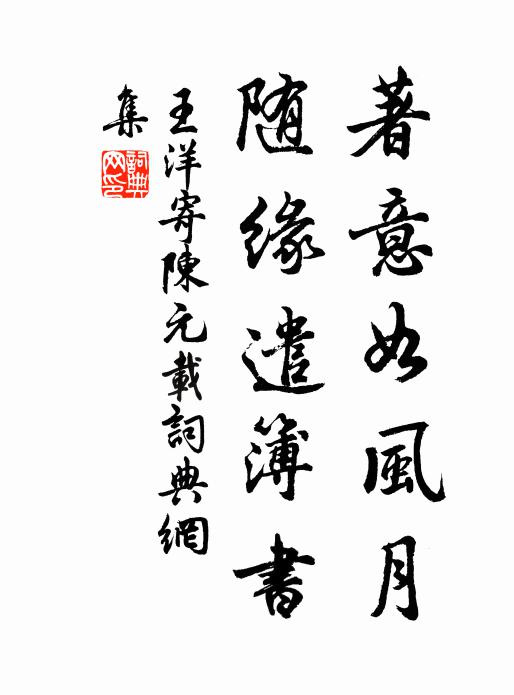 著意如風月
随緣遣簿書
王洋寄陳元載詞典網
集
詞典
网印